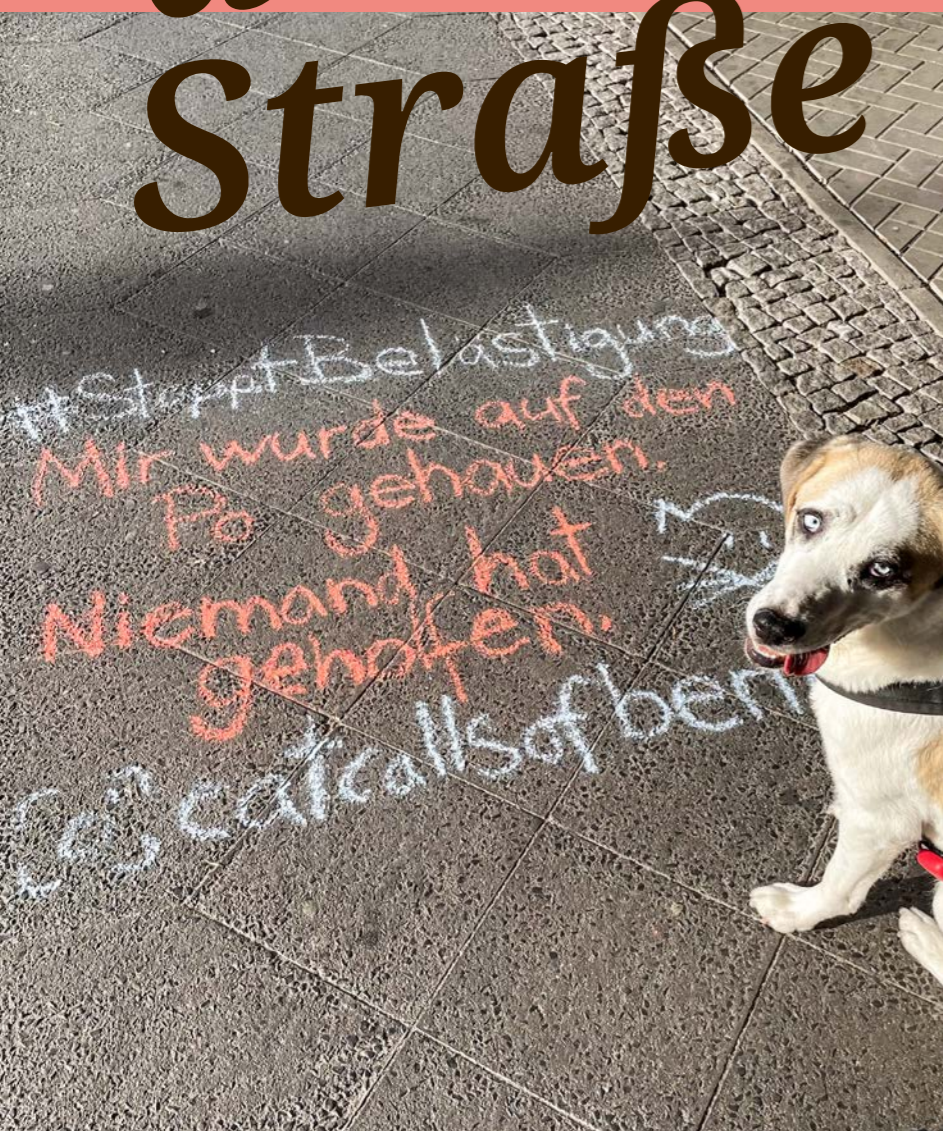 Straße
#StopptBelästigung
Mir wurde auf den
Po gehauen.
Niemand hat
geholfen.
@catcallsofber